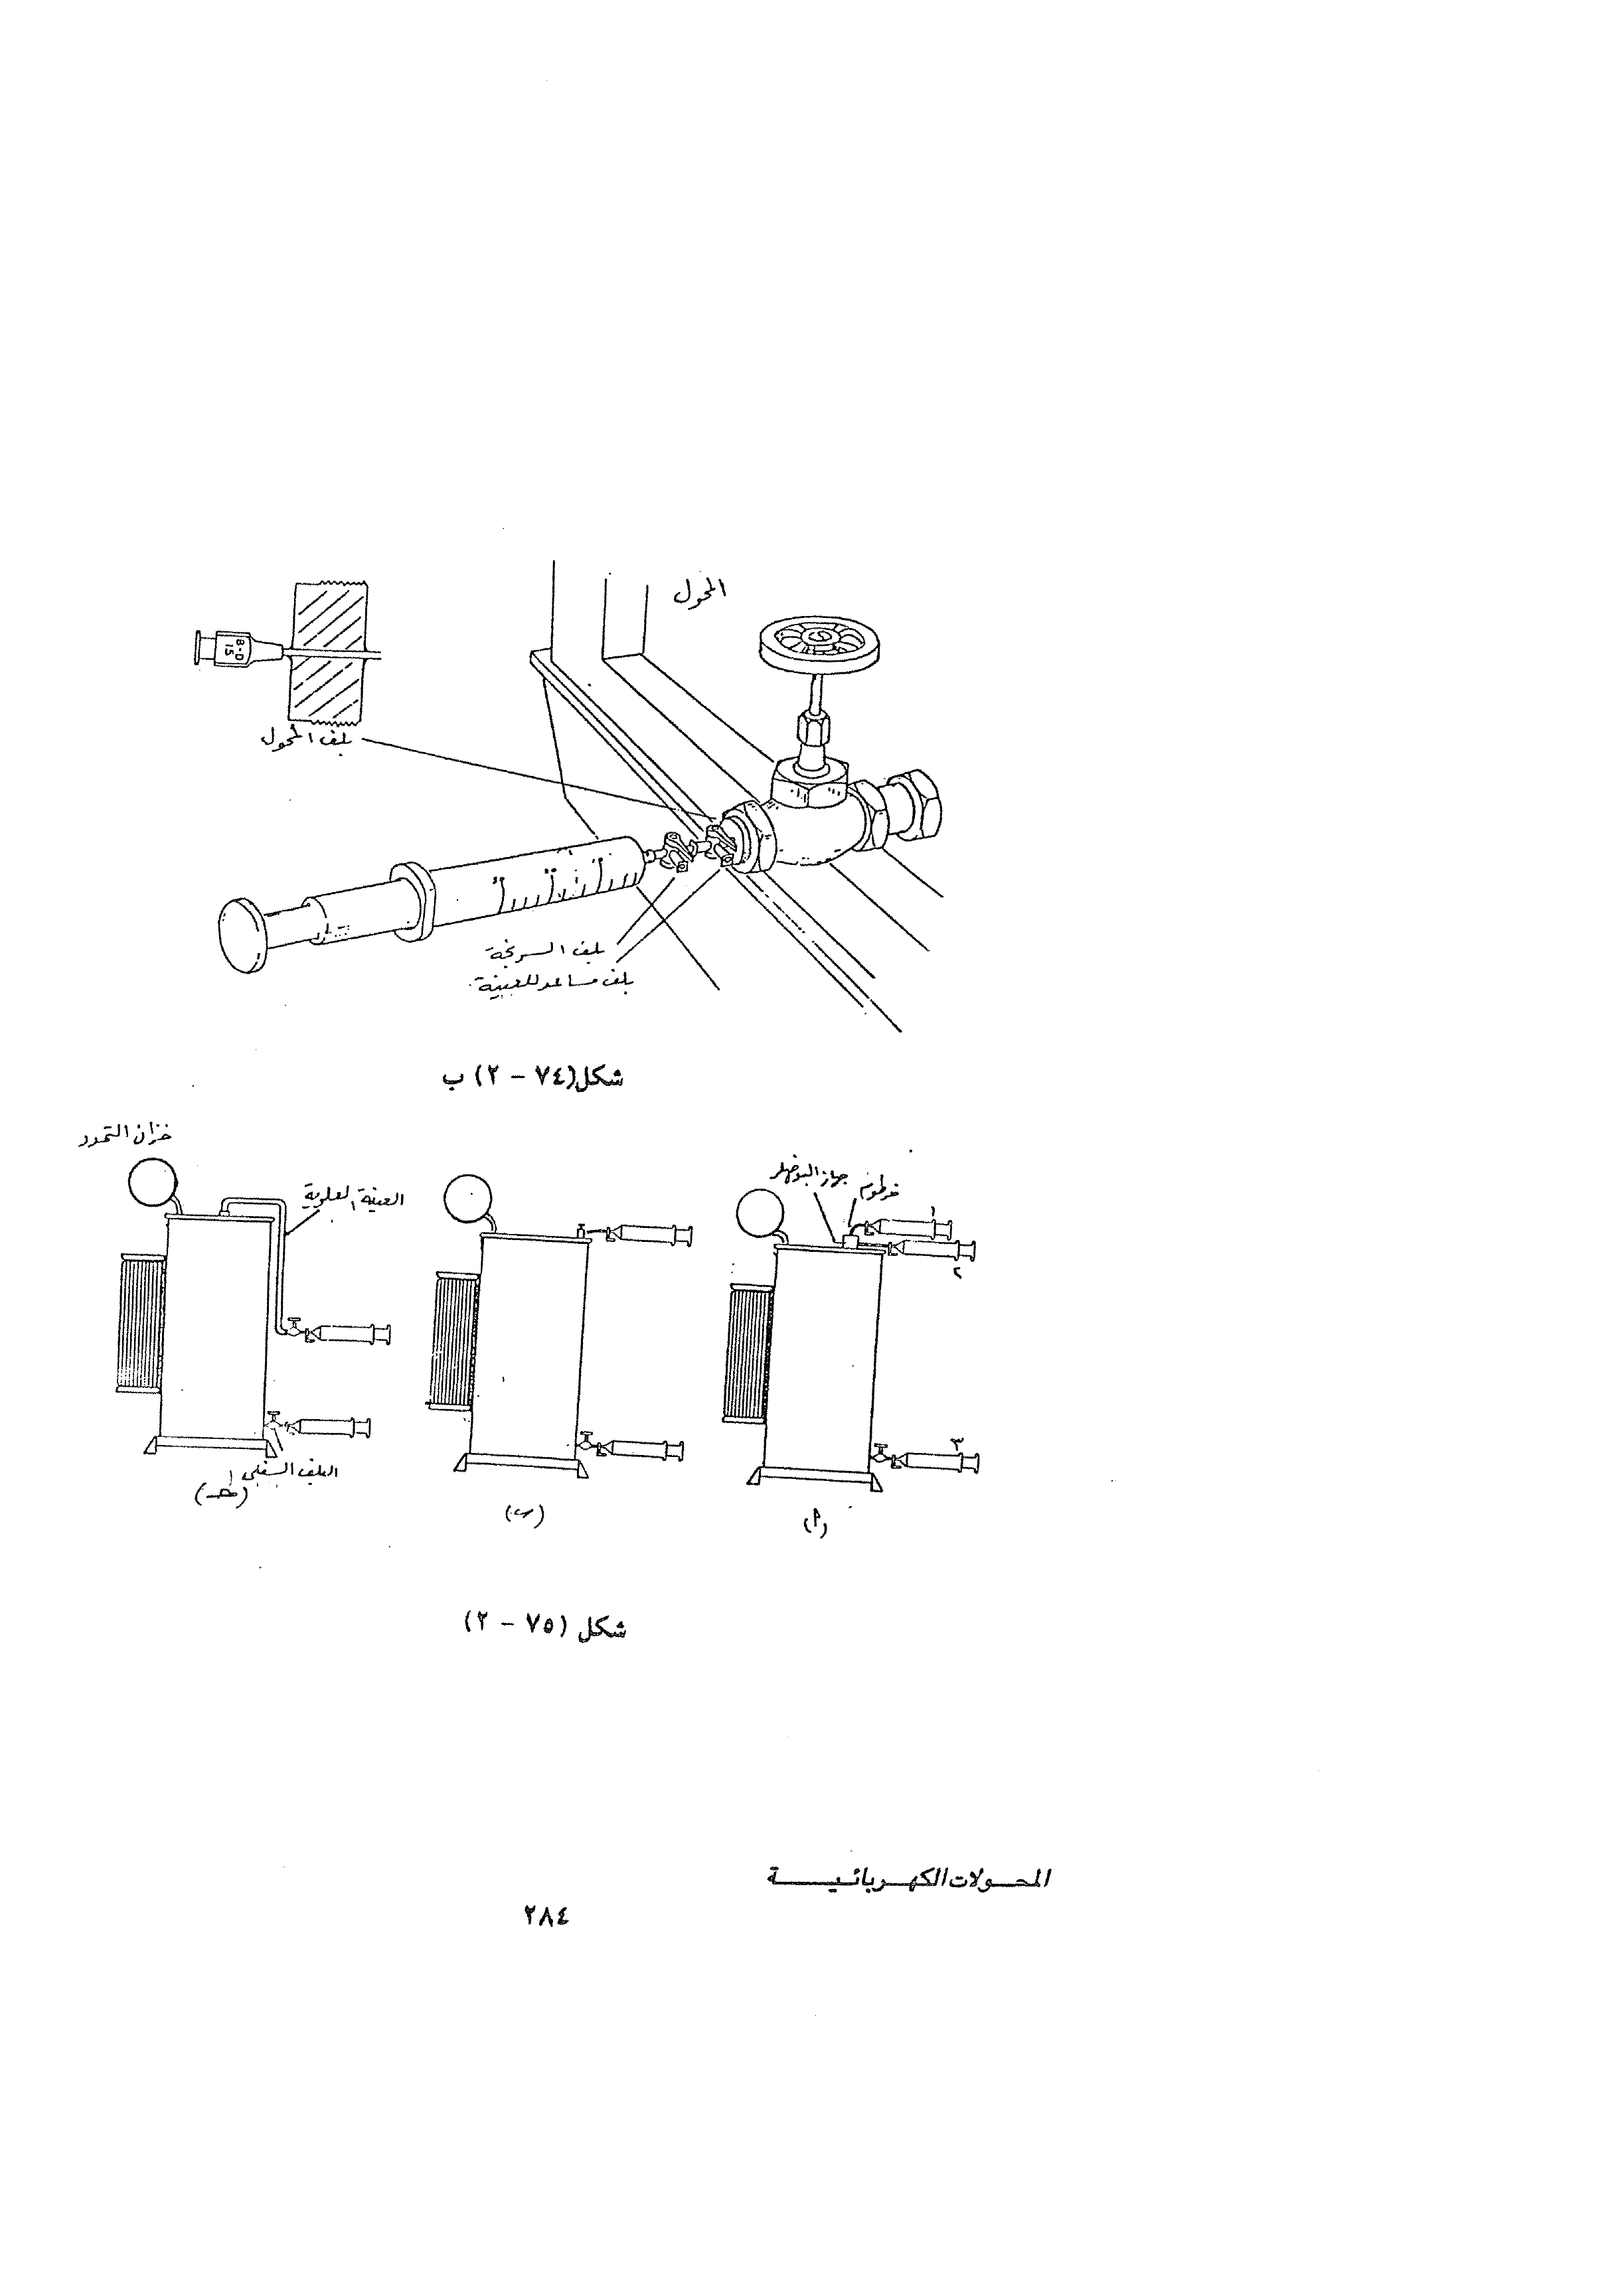 المحول
B-D
15
بلف المحول
بلف السرنجة
بلف مساعد للعينة
شكل (٧٤ - ٢) ب
خزان التمدد
العينة العلوية
جهاز البوخهلز
خرطوم
١
٢
٣
البلف السفلى
(جـ)
(ب)
(أ)
شكل (٧٥ - ٢)
المحـولات الكهـربائيـــة
٢٨٤